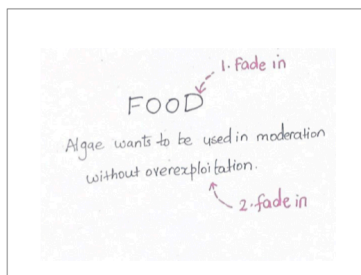 1. fade in
FOOD
Algae wants to be used in moderation
without overexploitation.
2. fade in